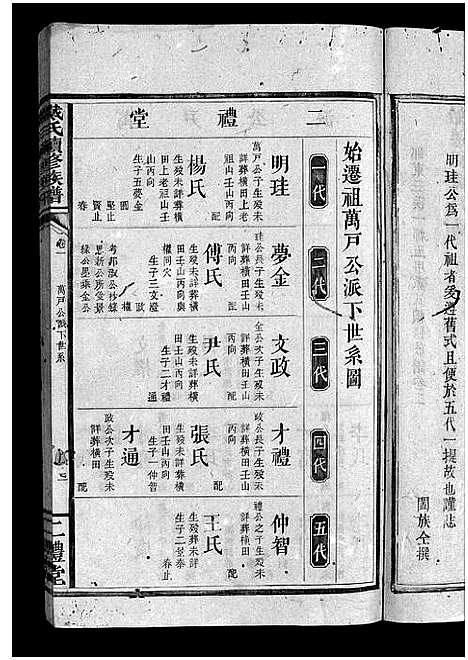 明珪公為一代祖者爰遵舊式且便於五代一提故也謹志
闔族全撰
二禮堂
始遷祖萬戶公派下世系圖
一代
二代
三代
四代
五代
明珪
萬戶公子生歿未
詳葬橫田上老
祖山壬山丙向
配
楊氏
生歿未詳葬橫
田上老祖山壬
山丙向
生子五夢金
圓
堅止
賢止
春
夢金
珪公長子生歿未
詳葬橫田壬山
丙向
配
傅氏
生歿未詳葬橫
田壬山丙向與
權同穴
生子三文澄
歐
權
文政
金公次子生歿未
詳葬橫田壬山
丙向
配
尹氏
生歿未詳葬橫
田壬山丙向
生子二才禮
通
才禮
政公長子生歿未
詳葬橫田壬山
丙向
配
張氏
生歿未詳葬橫田
壬山丙向
生子一仲智
才通
政公次子生歿未
詳葬橫田
配
仲智
禮公之子生歿未
詳葬橫田
配
王氏
生歿葬未詳
生子二景泰
春止
戴氏續修族譜
卷一
萬戶公派下世系
二禮堂